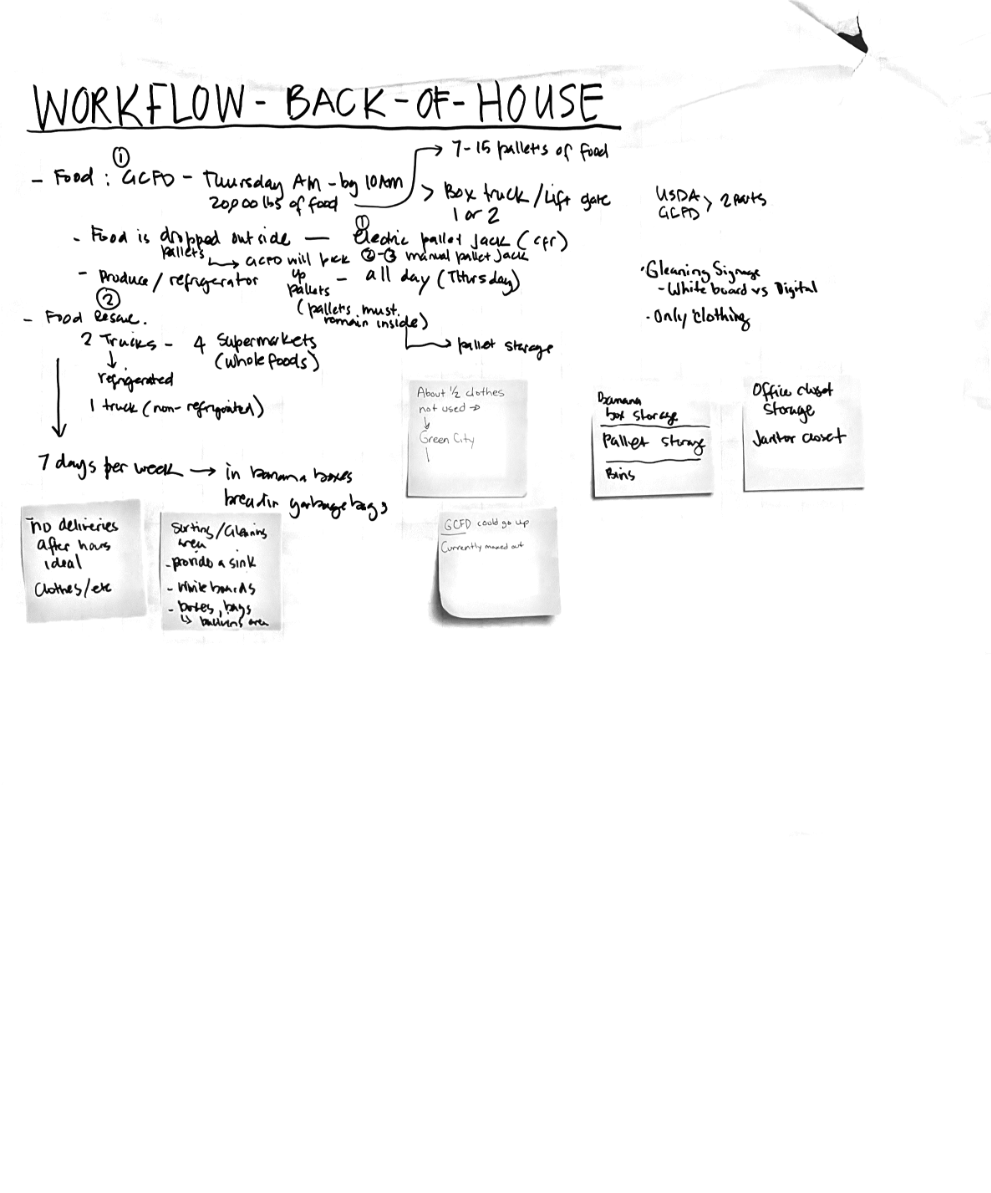 WORKFLOW - BACK-OF-HOUSE
①
- Food : GCFD - Thursday AM - by 10AM
20,000 lbs of food
→ 7-15 pallets of food
> Box truck / Lift gate
1 or 2
USDA
GCFD > 2 parts
- Food is dropped outside — ① electric pallet jack (cfr)
pallets → GCFD will pick up pallets
②-③ manual pallet Jack
- Produce / refrigerator — all day (Thursday)
(pallets must remain inside)
→ pallet storage
· Gleaning Signage
- White board vs Digital
· Only clothing
②
- Food Rescue.
2 Trucks - 4 Supermarkets
(Whole Foods)
↓
refrigerated
1 truck (non-refrigerated)
7 days per week → in banana boxes
bread in garbage bags
About 1/2 clothes
not used →
↓
Green City
Banana
box storage
Pallet storage
Bins
Office closet
Storage
Janitor closet
no deliveries
after hours
ideal
Clothes/etc
Sorting/Gleaning
area
- provide a sink
- White boards
- boxes, bags
↳ area
GCFD could go up
Currently maxed out